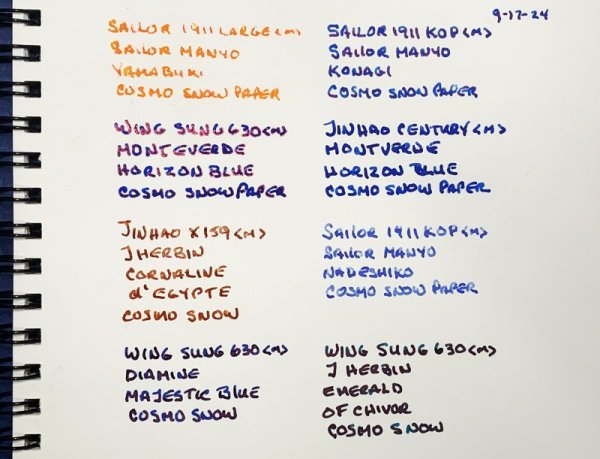 9-17-24
SAILOR 1911 LARGE <M>
SAILOR MANYO
YAMABUKI
COSMO SNOW PAPER
SAILOR 1911 KOP <M>
SAILOR MANYO
KONAGI
COSMO SNOW PAPER
WING SUNG 630 <M>
MONTEVERDE
HORIZON BLUE
COSMO SNOW PAPER
JINHAO CENTURY <M>
MONTVERDE
HORIZON BLUE
COSMO SNOW PAPER
JINHAO X159 <M>
J HERBIN
CORNALINE
d'EGYPTE
COSMO SNOW
SAILOR 1911 KOP <M>
SAILOR MANYO
NADESHIKO
COSMO SNOW PAPER
WING SUNG 630 <M>
DIAMINE
MAJESTIC BLUE
COSMO SNOW
WING SUNG 630 <M>
J HERBIN
EMERALD
OF CHIVOR
COSMO SNOW